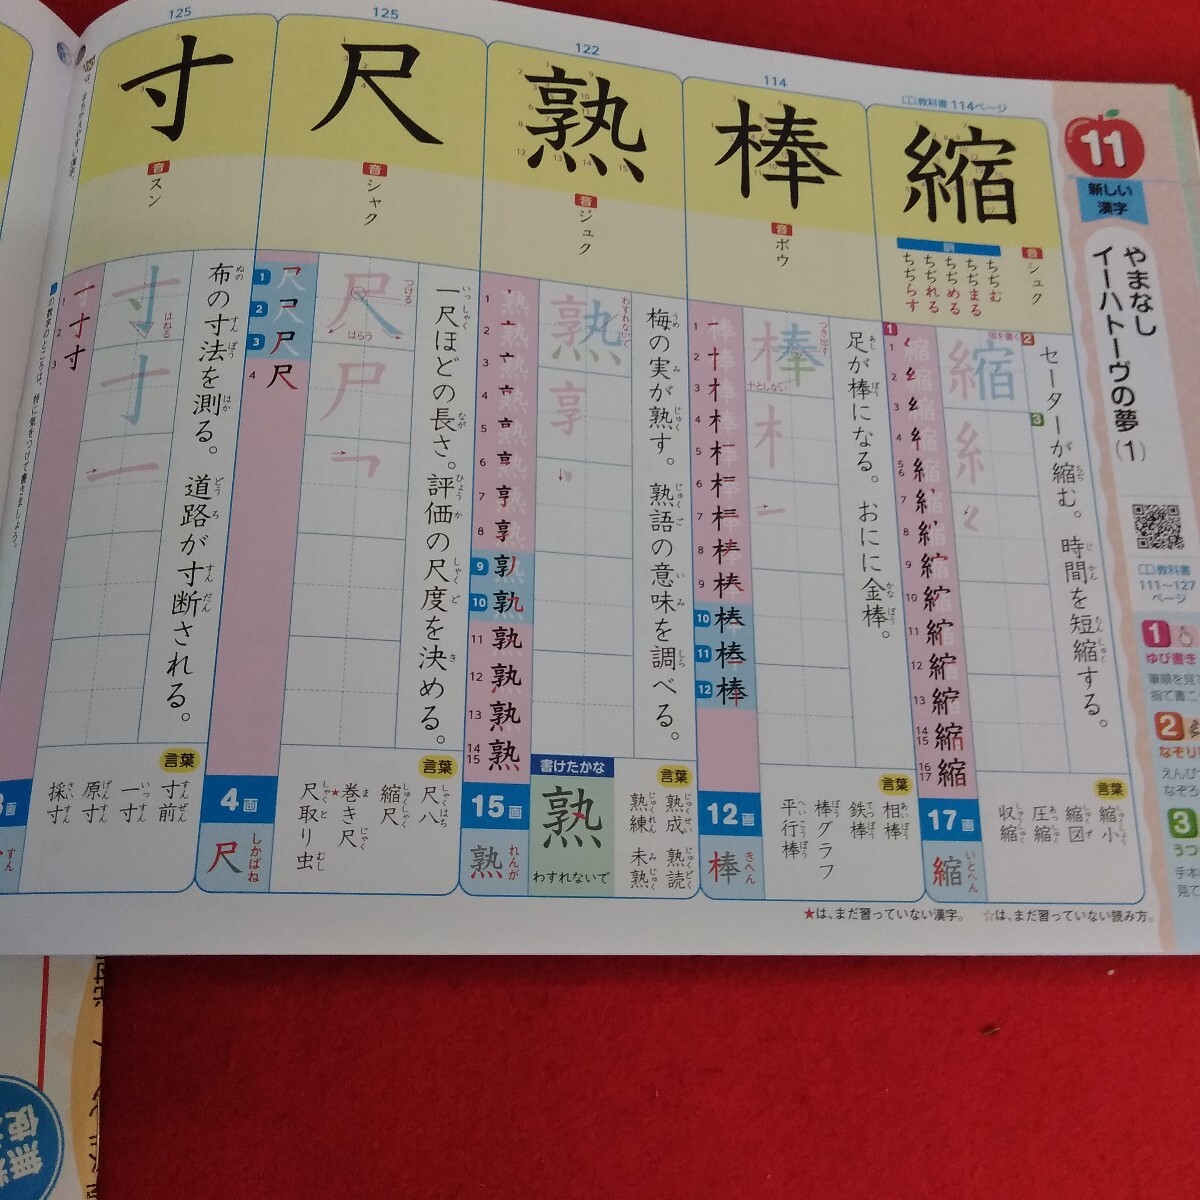 11
新しい漢字
やまなし
イーハトーヴの夢(1)
教科書
111〜127
ページ
1
ゆび書き
2
なぞり
3
うつ
教科書 114ページ
縮
音 シュク
訓
ちぢむ
ちぢまる
ちぢめる
ちぢれる
ちぢらす
セーターが縮む。時間を短縮する。
17画
縮
いとへん
言葉
縮小
縮図
圧縮
収縮
114
棒
音 ボウ
つき出す
十としない
足が棒になる。おにに金棒。
12画
棒
きへん
言葉
相棒
鉄棒
棒グラフ
平行棒
122
熟
音 ジュク
わすれないで
梅の実が熟す。熟語の意味を調べる。
15画
熟
れんが
書けたかな
熟
わすれないで
言葉
熟成
熟読
熟練
未熟
125
尺
音 シャク
つける
はらう
一尺ほどの長さ。評価の尺度を決める。
4画
尺
しかばね
言葉
尺八
縮尺
★巻き尺
尺取り虫
125
寸
音 スン
はねる
布の寸法を測る。道路が寸断される。
画
すん
言葉
寸前
一寸
原寸
採寸
の数字のところは、特に気をつけて書きましょう。
★は、まだ習っていない漢字。 ☆は、まだ習っていない読み方。